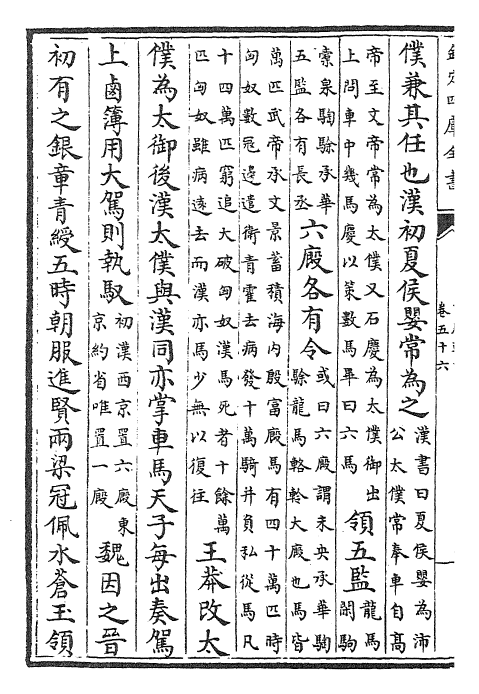 欽定四庫全書
卷五十六
僕兼其任也漢初夏侯嬰常為之漢書曰夏侯嬰為沛公太僕常奉車自高
帝至文帝常為太僕又石慶為太僕御出上問車中幾馬慶以策數馬畢曰六馬領五監龍馬閑駒
橐泉騊駼承華五監各有長丞六廄各有令或曰六廄謂未央承華騊駼龍馬輅軨大廄也馬皆
萬匹武帝承文景蓄積海内殷富廄馬有四十萬匹時匈奴數冦邉遣衛青霍去病發十萬騎并負私從馬凡
十四萬匹窮追大破匈奴漢馬死者十餘萬匹匈奴雖病逺去而漢亦馬少無以復往王莽改太
僕為太御後漢太僕與漢同亦掌車馬天子每出奏駕
上鹵簿用大駕則執馭初漢西京置六廄東京約省唯置一廄魏因之晉
初有之銀章青綬五時朝服進賢兩梁冠佩水蒼玉領